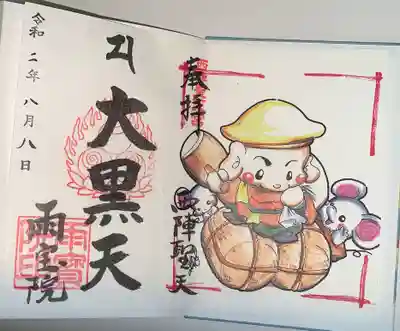 奉拝
西陣聖天
大黒天
雨宝院
雨寳院印
令和二年八月八日